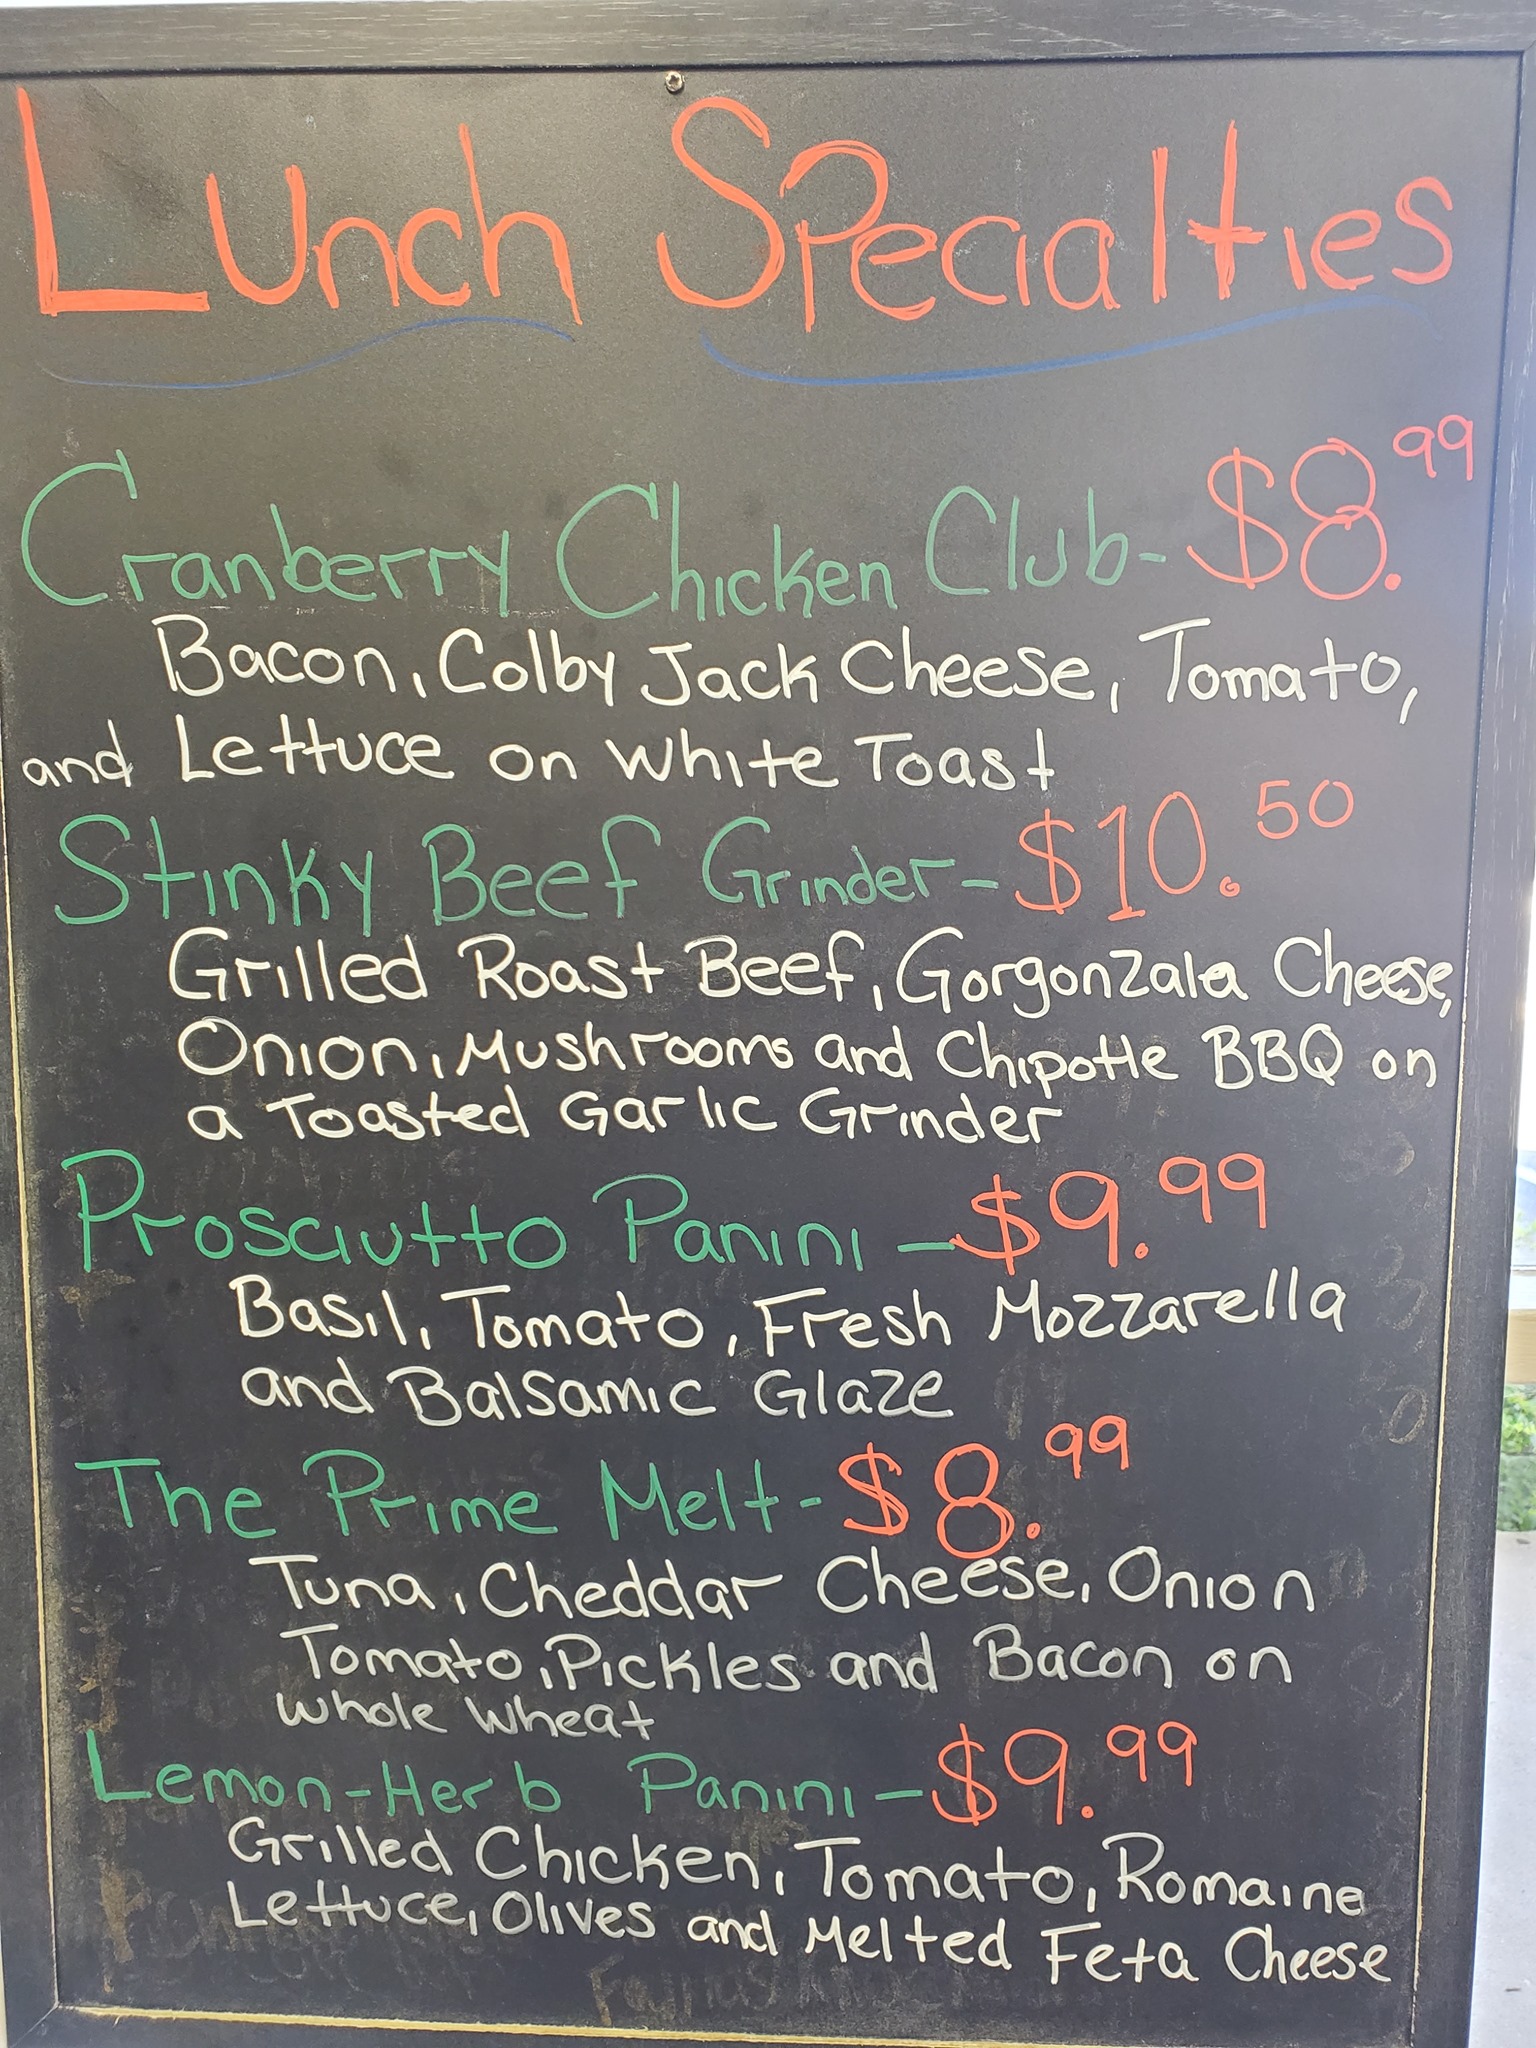 Lunch Specialties
Cranberry Chicken Club - $8.99
Bacon, Colby Jack Cheese, Tomato,
and Lettuce on White Toast
Stinky Beef Grinder - $10.50
Grilled Roast Beef, Gorgonzala Cheese,
Onion, Mushrooms and Chipotle BBQ on
a Toasted Garlic Grinder
Prosciutto Panini - $9.99
Basil, Tomato, Fresh Mozzarella
and Balsamic Glaze
The Prime Melt - $8.99
Tuna, Cheddar Cheese, Onion
Tomato, Pickles and Bacon on
Whole Wheat
Lemon-Herb Panini - $9.99
Grilled Chicken, Tomato, Romaine
Lettuce, Olives and Melted Feta Cheese